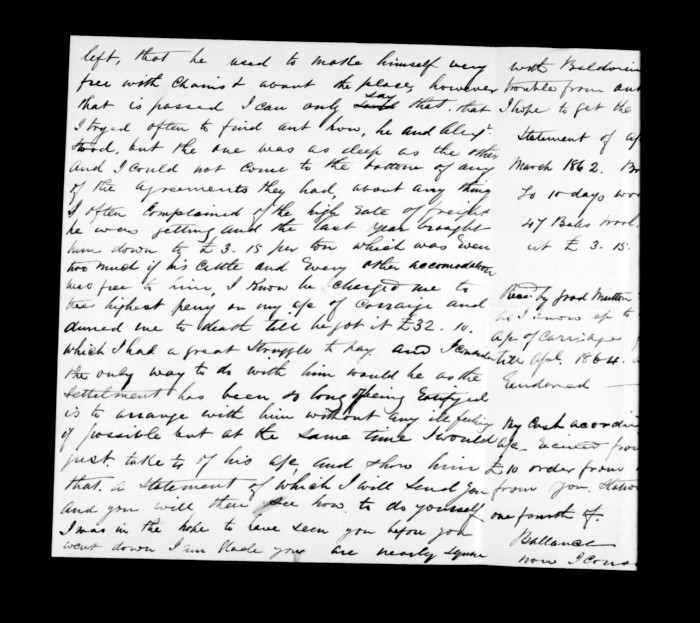 left, that he used to make himself very
free with Chains & about the place, however
that is passed I can only say that. that
I tryed often to find out how, he and Alexr.
Hood. but the one was as deep as the other
and I could not come to the bottom of any
of the Agreements they had about any thing
I often Complained of the high Rate of freight
he was getting and the last year brought
him down to £3.15 per ton which was even
too much if his Cattle and Every other accomodation
was free to him, I know he charged me to
the highest peny on my a/c of Carraige and
dunned me to death till he got it £32.10.
which I had a great Struggle to pay. and I consider
the only way to do with him would be as the
Settelment has been so long of being
is to arrange with him without any ill feeling
if possible but at the same time I would
just take ¼ of his a/c, and show him
that. a Statement of which I will Send you
and you will then see how to do yourself
I was in the hope to have seen you before you
went down I am Glade you are nearly square
with Baldwin
trouble from
I hope to get the
Statement of
March 1862.
To 10 days
47 Bales wool.
at £3.15.
Recd. by good Mutton
as I know up to
a/c of Carriage
till Apl. 1864.
Rendered
By Cash
a/c
£10 order from
from you.
one fourth of.
Ballance
now I